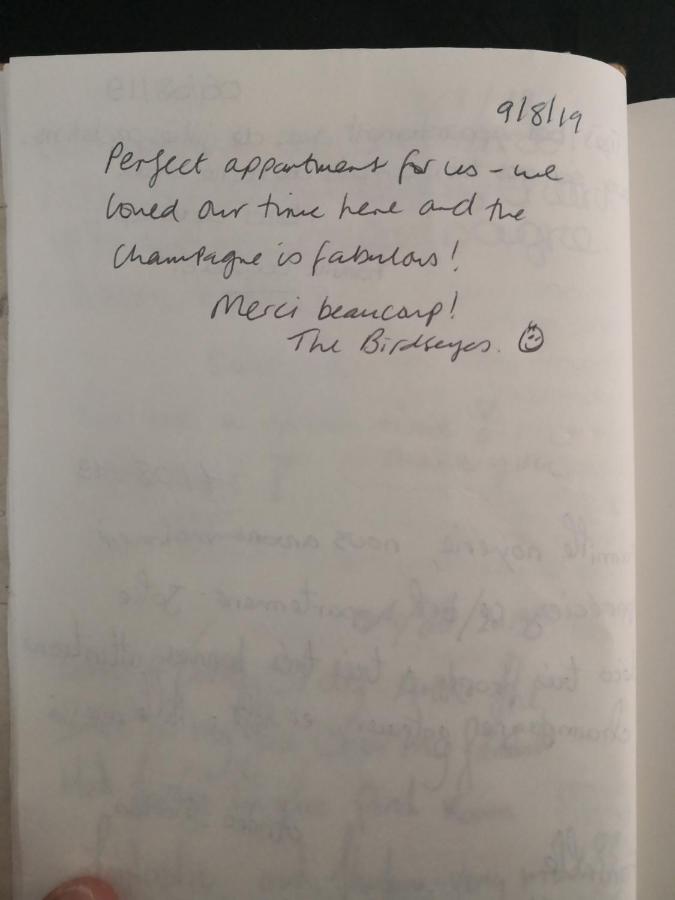 9/8/19
Perfect appartment for us - we
loved our time here and the
champagne is fabulous!
Merci beaucoup!
The Birdseyes.